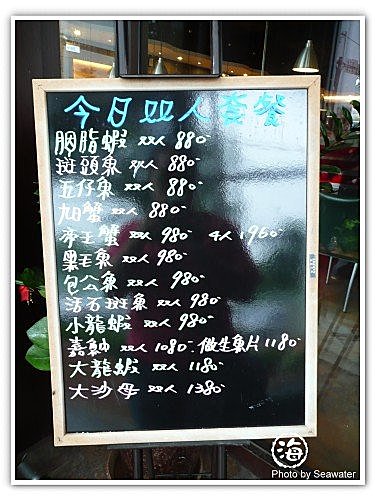 今日双人套餐
胭脂蝦 双人 880
斑頭魚 双人 880
五仔魚 双人 880
旭蟹 双人 880
帝王蟹 双人 980 4人1960
黑毛魚 双人 980
包公魚 双人 980
活石斑魚 双人 980
小龍蝦 双人 980
嘉魶 双人 1080 做生魚片1180
大龍蝦 双人 1180
大沙母 双人 1380
海
Photo by Seawater